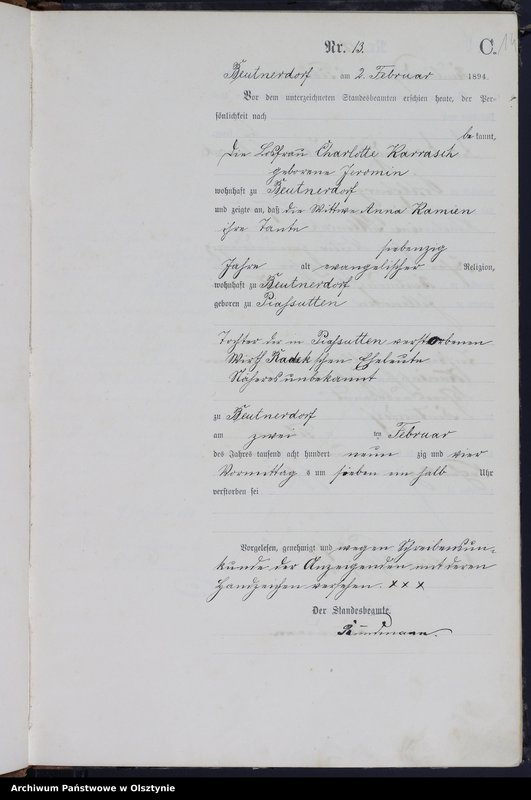 Nr. 13.
C.
Beutnerdorf am 2. Februar 1894.
Vor dem unterzeichneten Standesbeamten erschien heute, der Per-
sönlichkeit nach
be kannt,
die Losfrau Charlotte Karrasch
geborene Jeromin
wohnhaft zu Beutnerdorf
und zeigte an, daß die Wittwe Anna Kamien
ihre Tante
siebenzig
Jahre alt evangelischer Religion,
wohnhaft zu Beutnerdorf
geboren zu Piassutten
Tochter der in Piassutten verstorbenen
Wirth Radek schen Eheleute
Näheres unbekannt
zu Beutnerdorf
am zwei ten Februar
des Jahres tausend acht hundert neun zig und vier
Vormittags um sieben ein halb Uhr
verstorben sei
Vorgelesen, genehmigt und wegen Schreibensun-
kunde der Anzeigenden mit deren
Handzeichen versehen. x x x
Der Standesbeamte.
Archiwum Państwowe w Olsztynie